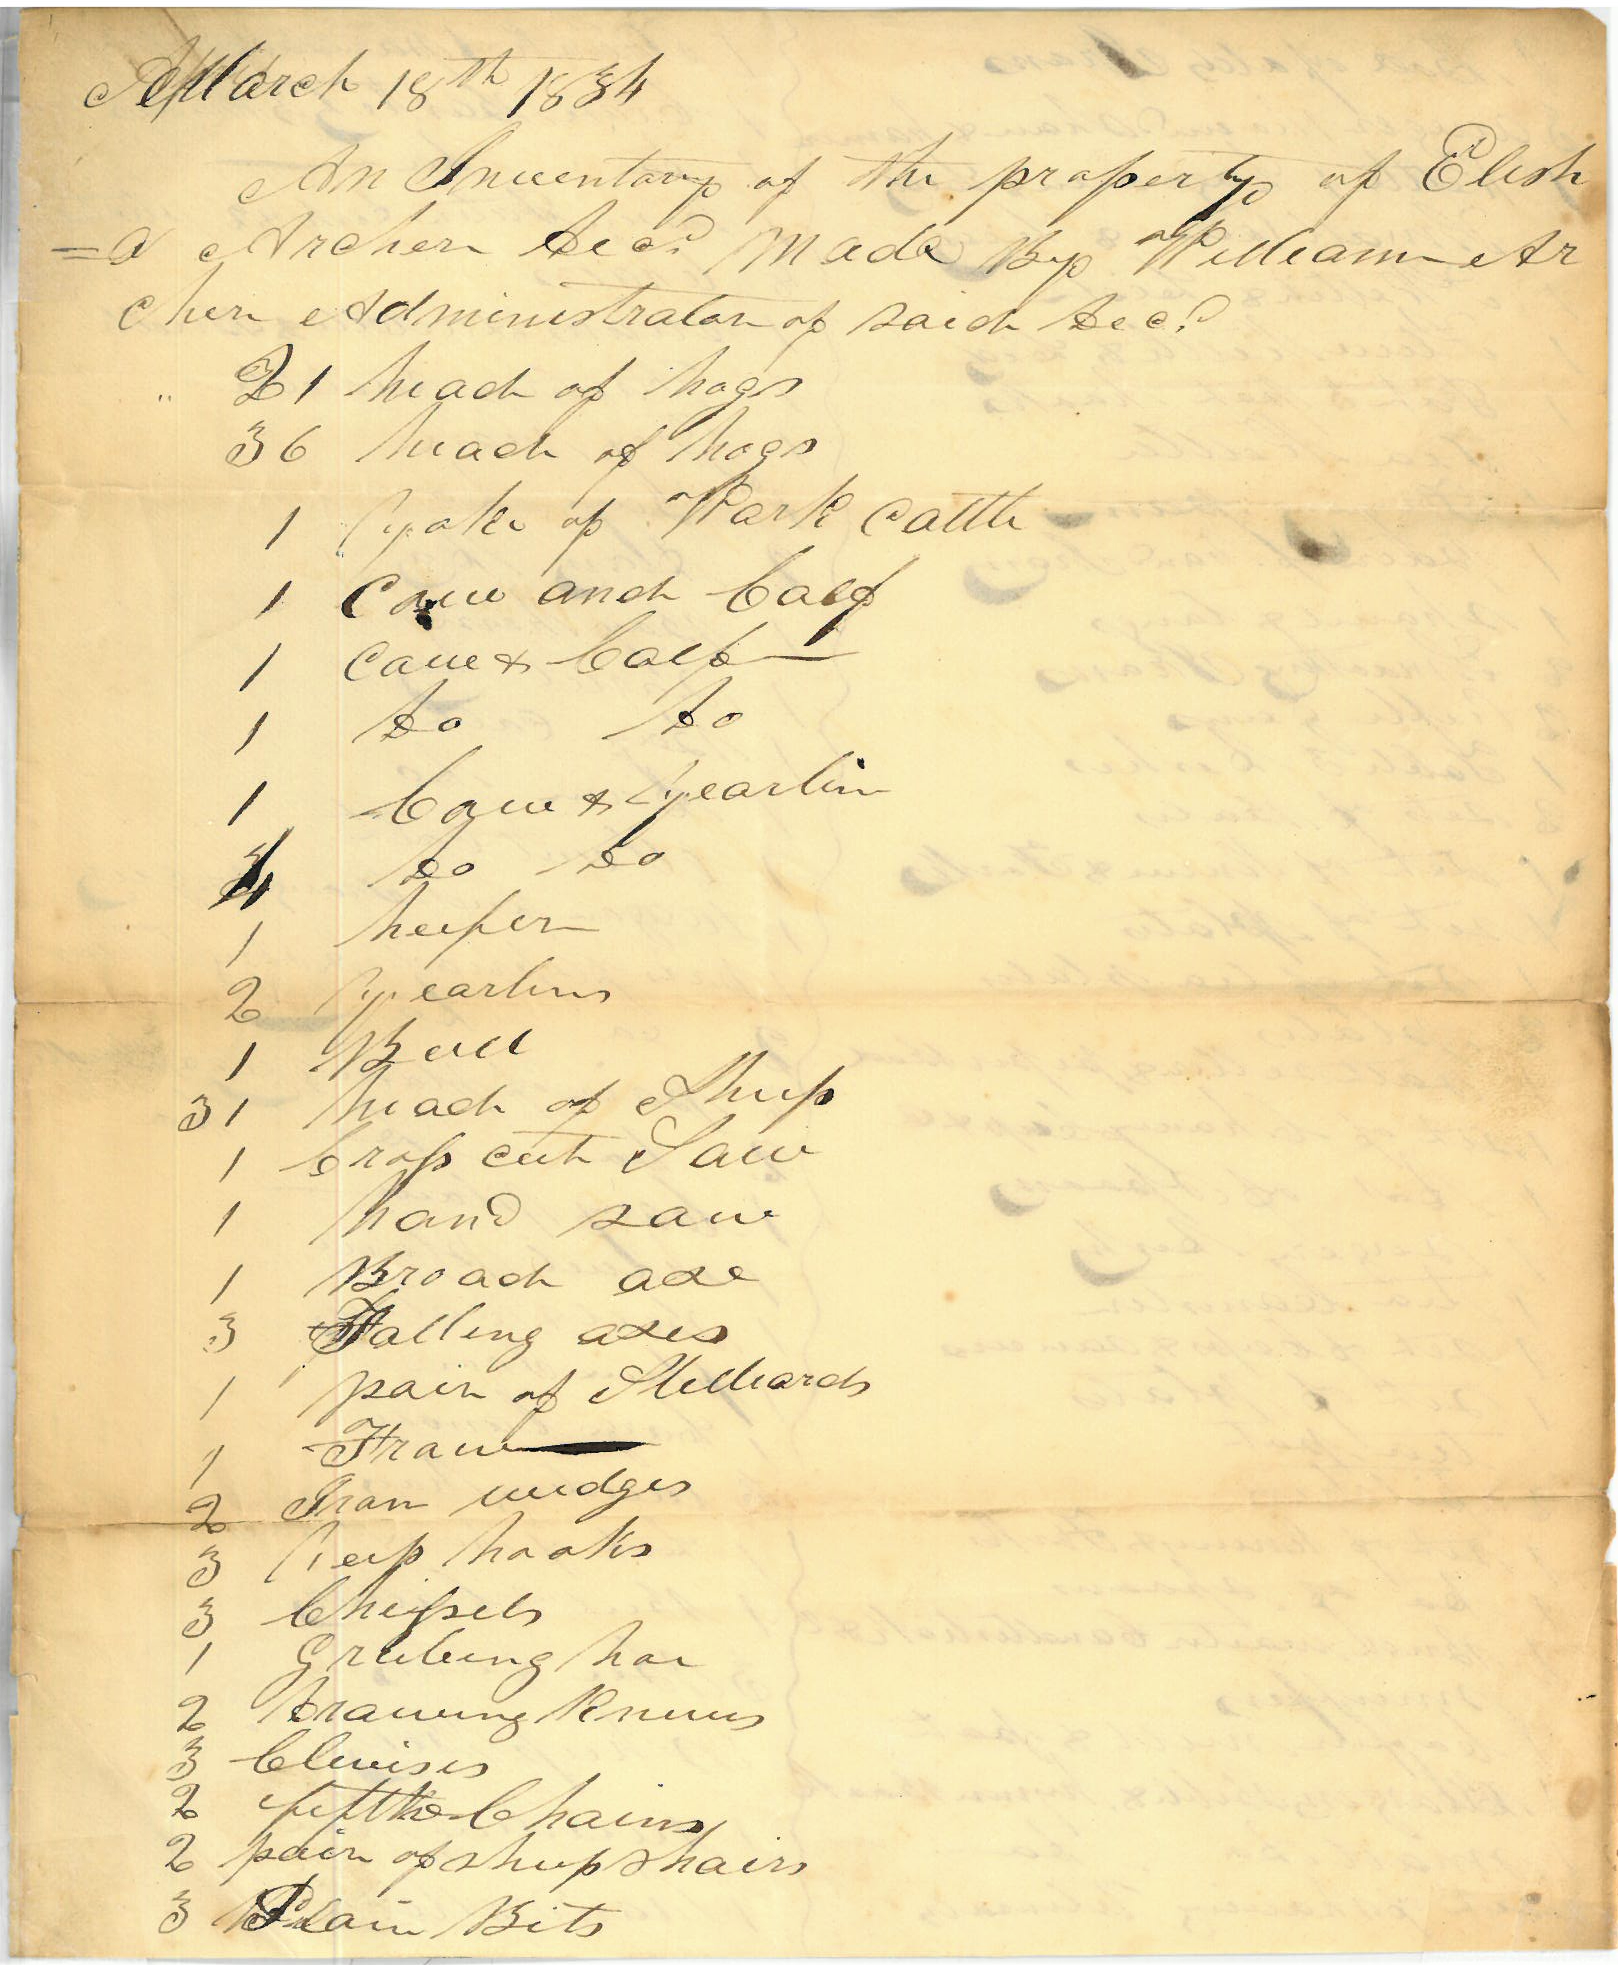 March 18th 1834
An Inventory of the property of Elish
=a Archer Decd Made By William Ar
cher Administrator of said Decd
21 head of hogs
36 head of hogs
1 yoke of Work Cattle
1 Cow and Calf
1 Cow & Calf
1 Do Do
1 Cow & yearlin
Do Do
1 heifer
2 yearlins
1 Bull
31 head of Sheep
1 Cross cut Saw
1 hand saw
1 Broad axe
3 Falling axes
1 pair of Stilliards
1 Frow
2 Iron wedges
3 reap hooks
3 Chissels
1 Grubing hoe
2 Drawing Knives
3 Clevises
2 fifth Chains
2 pair of sheep shairs
3 Plain Bits